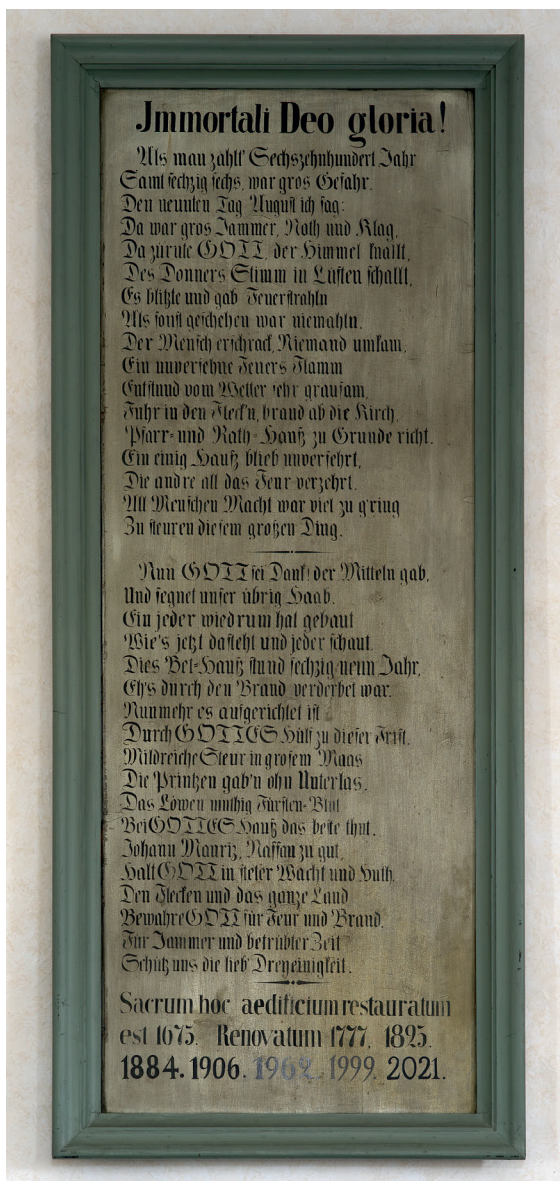 Immortali Deo gloria!
Als man zahlt' Sechszehnhundert Jahr
Samt sechzig sechs, war gros Gefahr.
Den neunten Tag August ich sag:
Da war gros Jammer, Noth und Klag,
Da zürnte GOTT, der Himmel knallt,
Des Donners Stimm in Lüften schallt,
Es blitzte und gab Feuerstrahln
Als sonst geschehen war niemahln.
Der Mensch erschrack, Niemand umkam,
Ein unversehne Feuers Flamm
Entstund vom Wetter sehr grausam,
Fuhr in den Fleck'n, brand ab die Kirch,
Pfarr- und Rath-Hauß zu Grunde richt.
Ein einig Hauß blieb unversehrt,
Die andre all das Feur verzehrt.
All Menschen Macht war viel zu g'ring
Zu steuren diesem großen Ding.
Nun GOTT sei Dank! der Mitteln gab,
Und segnet unser übrig Haab.
Ein jeder wiedrum hat gebaut
Wie's jetzt dasteht und jeder schaut.
Dies Bet-Hauß stund sechzig neun Jahr,
Eh's durch den Brand verderbet war.
Nunmehr es aufgerichtet ist
Durch GOTTES Hülf zu dieser Frist.
Mildreiche Steur in grosem Maas
Die Printzen gab'n ohn Unterlas.
Das Löwen muthig Fürsten-Blut
Bei GOTTES Hauß das beste thut.
Johann Mauriz, Nassau zu gut,
Halt GOTT in steter Wacht und Huth.
Den Flecken und das ganze Land
Bewahre GOTT für Feur und Brand.
Für Jammer und betrübter Zeit
Schütz uns die lieb' Dreyeinigkeit.
Sacrum hoc aedificium restauratum
est 1675. Renovatum 1777. 1825.
1884. 1906. 1962. 1999. 2021.